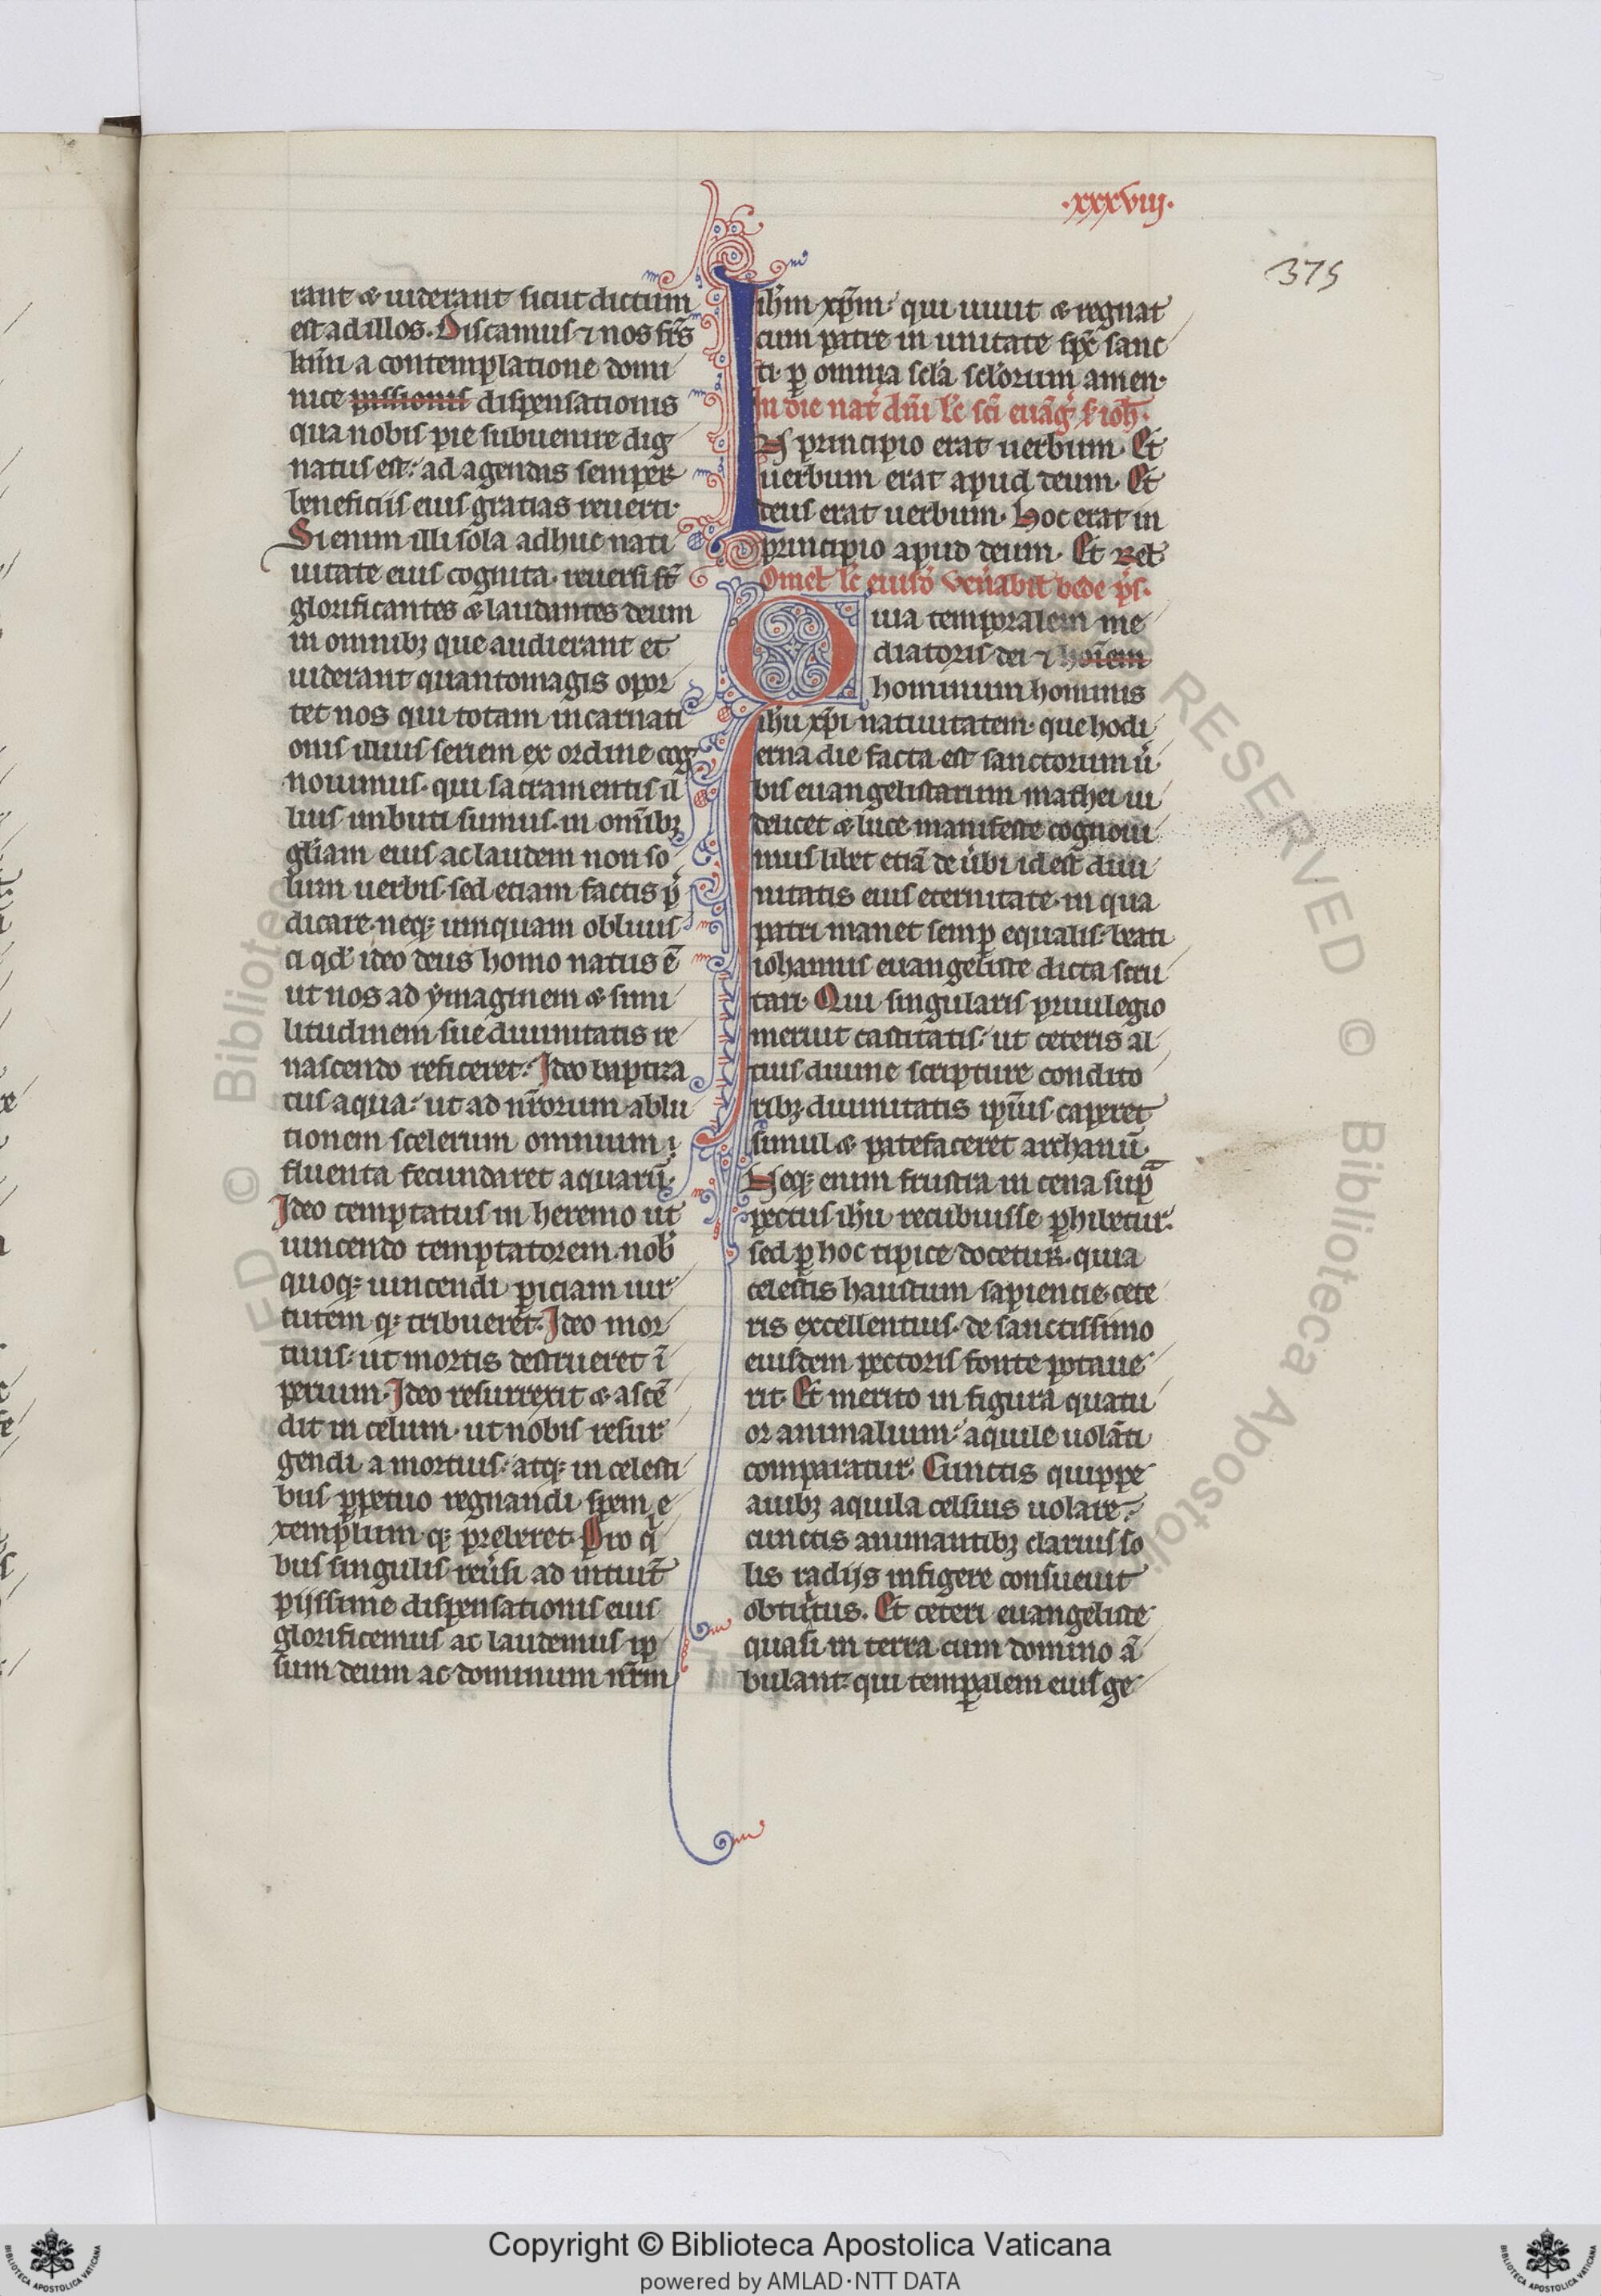 ·xxxviij·
375
rant & uiderant sicut dictum
est ad illos. Discamus ⁊ nos fr̄s
km̄i a contemplatione domi
nice passionis dispensationis
qua nobis pie subuenire dig
natus est: ad agendas semper
beneficiis eius gratias reuerti.
Si enim illi sola adhuc nati
uitate eius cognita. reuersi st̄
glorificantes & laudantes deum
in omnibꝫ que audierant et
uiderant quantomagis opor
tet nos qui totam incarnati
onis illius seriem ex ordine cog
nouimus. qui sacramentis il
lius imbuti sumus. in om̄ibꝫ
gl̄iam eius ac laudem non so
lum uerbis. sed etiam factis p̄
dicare. neqꝫ umquam obliuis
ci qd̄ ideo deus homo natus ē
ut nos ad ymaginem & simi
litudinem sue diuinitatis re
nascendo reficeret. Ideo baptiza
tus aqua: ut ad nr̄orum ablu
tionem scelerum omnium
fluenta fecundaret aquarū.
Ideo temptatus in heremo ut
uincendo temptatorem. nob̄
quoqꝫ uincendi piciam uir
tutem qꝫ tribueret. Ideo mor
tuus: ut mortis destrueret ī
perium. Ideo resurrexit & ascē
dit in celum. ut nobis resur
gendi a mortuis. atqꝫ in celesti
bus ꝑpetuo regnandi. spem e
xemplum. qꝫ preberet. Pro qͥ
bus singulis reūsi ad intuit̄
pijssime dispensationis eius
glorificemus ac laudemus ip
sum deum ac dominum nr̄m
ih̄m xp̄m. qui uiuit & regnat
cum patre in unitate sp̄c sanc
ti. ꝑ omnia scl̄a scl̄orum amen.
In die nat̄ dn̄i lc̄ sc̄i euāḡ s̄ ioh̄.
IN principio erat uerbum. Et
uerbum erat apud deum. Et
deus erat uerbum. Hoc erat in
principio apud deum. Et Rel̄
Omel̄ lc̄ eiusd̄ ven̄abil̄ bede p̄s.
Quia temporalem me
diatoris dei ⁊ hoīem
hominum hominis
ih̄u xp̄i natiuitatem. que hodi
erna die facta est sanctorum ū
bis euangelistarum mathei ui
delicet & luce manifeste cognoui
mus libet etiā de ūbi id est diui
nitatis eius eternitate. in qua
patri manet semꝑ equalis. beati
iohannis euangeliste dicta scru
tari. Qui singularis priuilegio
meruit castitatis: ut ceteris al
tius diuine scripture condito
ribꝫ diuinitatis ip̄ius caperet
simul & patefaceret archanū.
Neqꝫ enim frustra in cena supᵃ
pectus ih̄u recubuisse ꝑhibetur.
sed ꝑ hoc tipice docetur. quia
celestis haustum sapientie. cete
ris excellentius. de sanctissimo
eiusdem pectoris fonte potaue
rit. Et merito in figura quatu
or animalium: aquile uolāti
comparatur. Cunctis quippe
auibꝫ aquila celsius uolare:
cunctis animantibꝫ clarius so
lis radijs infigere consueuit
obtutus. Et ceteri euangeliste
quasi in terra cum domino ā
bulant: qui temꝑalem eius ge
Copyright © Biblioteca Apostolica Vaticana
powered by AMLAD·NTT DATA